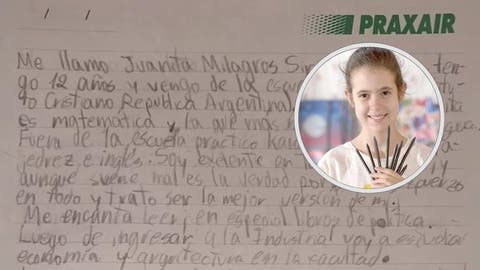 PRAXAIR
Me llamo Juanita Milagros ten-
go 12 años y vengo de la
to Cristiano Republica Argentina
es matemática y la que mas
Fuera de la escuela practico
ajedrez e inglés. Soy
aunque suene mal es la verdad
en todo y trato ser la mejor version de mi.
Me encanta leer en especial libros de politica.
Luego de ingresar a la Industrial voy a estudiar
economía y arquitectura en la facultad.